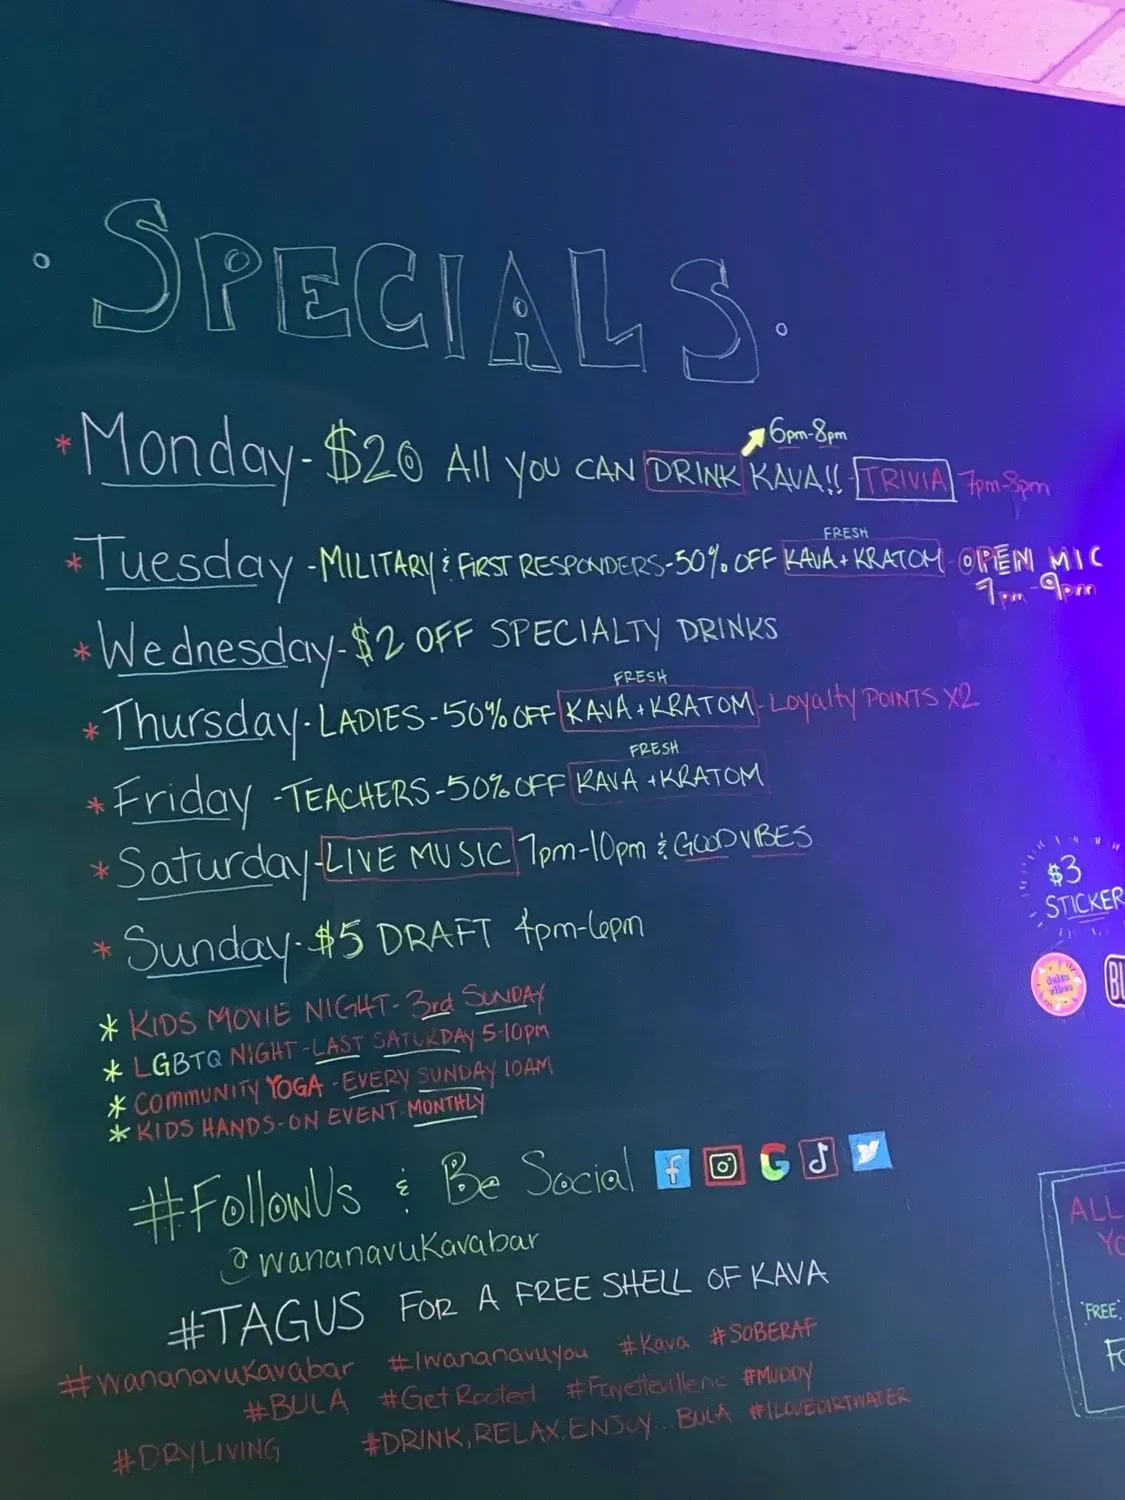 SPECIALS
6pm-8pm
* Monday - $20 All YOU CAN DRINK KAVA!! - TRIVIA 7pm-8pm
FRESH
* Tuesday - MILITARY & FIRST RESPONDERS - 50% OFF KAVA + KRATOM - OPEN MIC
7pm-9pm
* Wednesday - $2 OFF SPECIALTY DRINKS
FRESH
* Thursday - LADIES - 50% OFF KAVA + KRATOM - Loyalty POINTS X2
FRESH
* Friday - TEACHERS - 50% OFF KAVA + KRATOM
* Saturday - LIVE MUSIC 7pm-10pm & GOOD VIBES
* Sunday - $5 DRAFT 4pm-6pm
* KIDS MOVIE NIGHT - 3rd SUNDAY
* LGBTQ NIGHT - LAST SATURDAY 5-10pm
* COMMUNITY YOGA - EVERY SUNDAY 10AM
* KIDS HANDS-ON EVENT MONTHLY
#FollowUs & Be Social
@wananavuKavabar
#TAGUS FOR A FREE SHELL OF KAVA
#wananavuKavabar #Iwananavuyou #Kava #SOBERAF
#BULA #GetRooted #Fayettevillenc #MUDDY
#DRYLIVING #DRINK, RELAX, ENJOY... BULA #ILOVEDIRTWATER
$3
STICKER
BU
ALL
YO
"FREE"